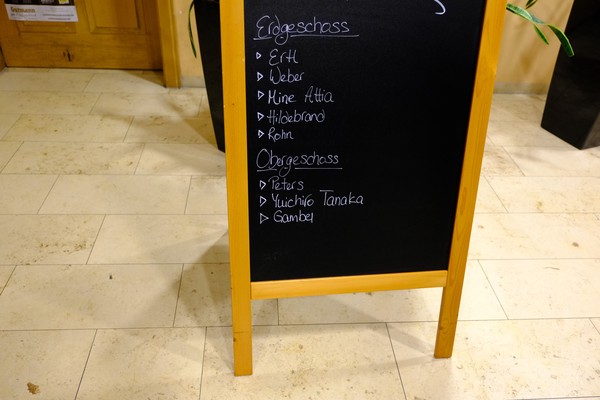 Erdgeschoss
▷ Ertl
▷ Weber
▷ Mine Attia
▷ Hildebrand
▷ Rohn
Obergeschoss
▷ Peters
▷ Yuichiro Tanaka
▷ Gambel